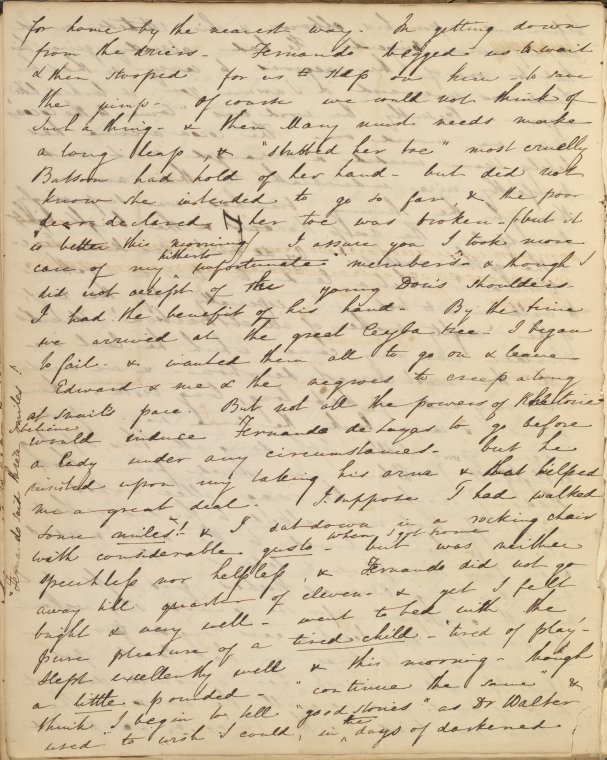 for home by the nearest way. In getting down
from the driers - Fernando begged us to wait
& then stooped for us to step on him - to save
the jump - Of course we could not think of
such a thing - & then Mary must needs make
a long leap, & "stubbed her toe" most cruelly
Batson had hold of her hand - but did not
know she intended to go so far & the poor
dear declared her toe was broken - (but it
is better this morning) I assure you I took more
care of my hitherto "unfortunate members" - & though I
did not accept of the young Don's shoulders
I had the benefit of his hand - By the time
we arrived at the great Ceyba tree - I began
to fail - & wanted them all to go on & leave
Edward & me & the negroes to creep along
at snail's pace. But not all the powers of Rhetoric
would induce Fernando de Layas to go before
a lady under any circumstances - but he
insisted upon my taking his arm & that helped
me a great deal. I suppose I had walked
some miles x! & I sat down in a rocking chair
with considerable gusto - when I got home - but was neither
speechless nor helpless, & Fernando did not go
away till quarter of eleven - & yet I felt
bright & very well - went to bed with the
pure pleasure of a tired child - "tired of play" -
Slept excellently well & this morning - though
a little pounded - "continue the same" &
think I begin to tell "good stories" as Dr Walter
used "to wish I could, in the days of darkened
x Fernando said three miles!